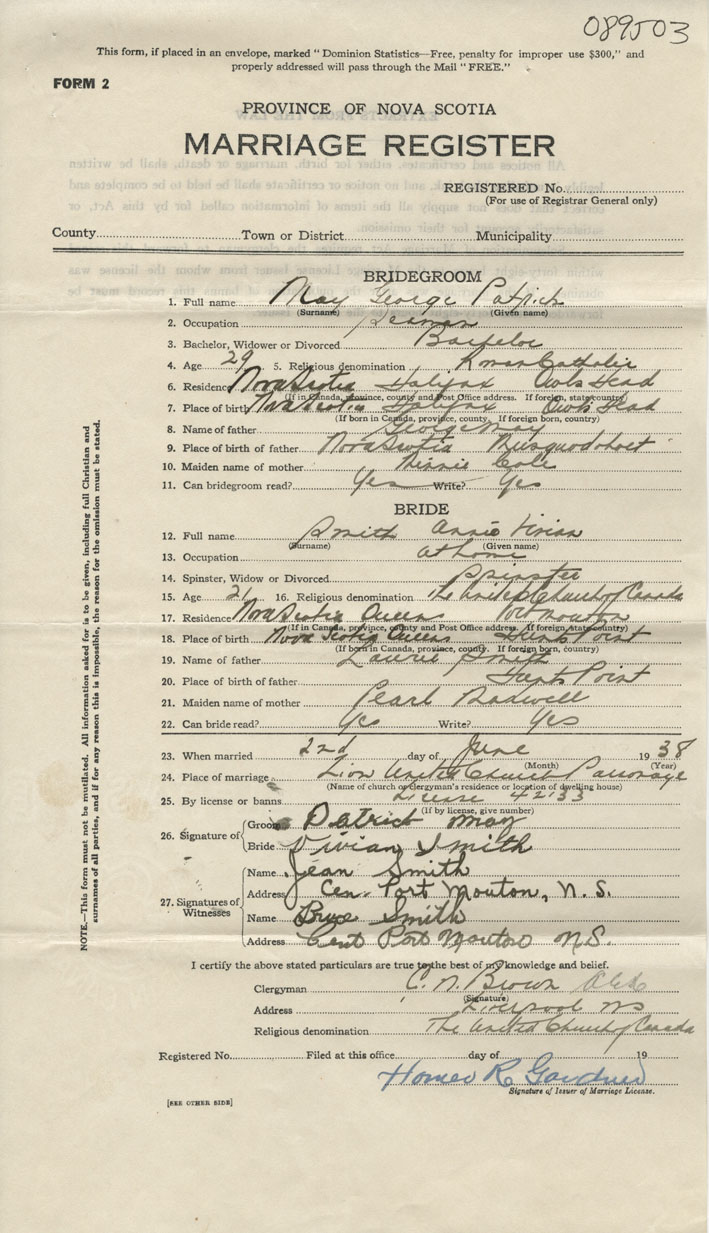 089503
This form, if placed in an envelope, marked "Dominion Statistics—Free, penalty for improper use $300," and
properly addressed will pass through the Mail "FREE."
FORM 2
PROVINCE OF NOVA SCOTIA
MARRIAGE REGISTER
REGISTERED No.
(For use of Registrar General only)
County Town or District Municipality
BRIDEGROOM
1. Full name May George Patrick
(Surname) (Given name)
2. Occupation Seaman
3. Bachelor, Widower or Divorced Bachelor
4. Age 29 5. Religious denomination Roman Catholic
6. Residence Nova Scotia Halifax Owls Head
(If in Canada, province, county and Post Office address. If foreign, state country)
7. Place of birth Nova Scotia Halifax Owls Head
(If born in Canada, province, county. If foreign born, country)
8. Name of father George May
9. Place of birth of father Nova Scotia Musquodoboit
10. Maiden name of mother Minnie Cole
11. Can bridegroom read? Yes Write? Yes
BRIDE
12. Full name Smith Annie Vivian
(Surname) (Given name)
13. Occupation at home
14. Spinster, Widow or Divorced Spinster
15. Age 21 16. Religious denomination The United Church of Canada
17. Residence Nova Scotia Queens Port Mouton
(If in Canada, province, county and Post Office address. If foreign, state country)
18. Place of birth Nova Scotia Queens Hunts Point
(If born in Canada, province, county. If foreign born, country)
19. Name of father Laurie Smith
20. Place of birth of father Hunts Point
21. Maiden name of mother Pearl
22. Can bride read? Yes Write? Yes
23. When married 2nd day of June 1938
(Month) (Year)
24. Place of marriage Zion United Church Parsonage
(Name of church or clergyman's residence or location of dwelling house)
25. By license or banns License 42133
(If by license, give number)
26. Signature of Groom Patrick May
Bride Vivian Smith
27. Signatures of Witnesses Name Jean Smith
Address Cen. Port Mouton, N.S.
Name Bruce Smith
Address Cent Port Mouton N.S.
I certify the above stated particulars are true to the best of my knowledge and belief.
Clergyman C. N. Brown
(Signature)
Address Liverpool NS
Religious denomination The United Church of Canada
Registered No. Filed at this office day of 19
Homer R Gardner
Signature of Issuer of Marriage License.
[SEE OTHER SIDE]
NOTE.—This form must not be mutilated. All information asked for is to be given, including full Christian and
surnames of all parties, and if for any reason this is impossible, the reason for the omission must be stated.